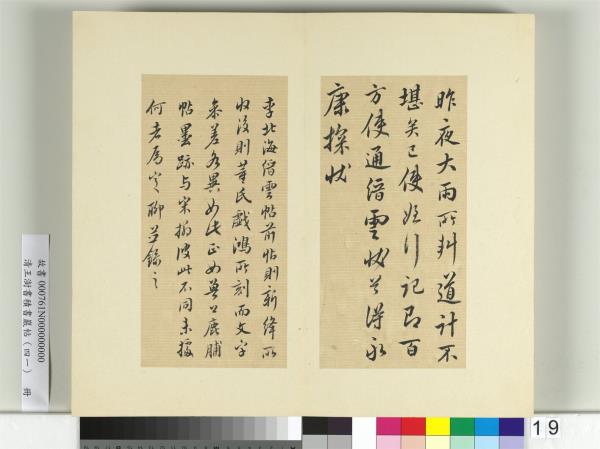 昨夜大雨所糾道計不
堪矣已使
記即百
方使通縉雲
得永
康探狀
李北海縉雲帖前帖則新絳所
收後則董氏戲鴻所刻而文字
參差各異如此正如
鹿脯
帖墨跡與宋搨彼此不同未據
何者為定聊並錄之
故書 000761N000000000
清王澍書積書巖帖（四一） 冊
19